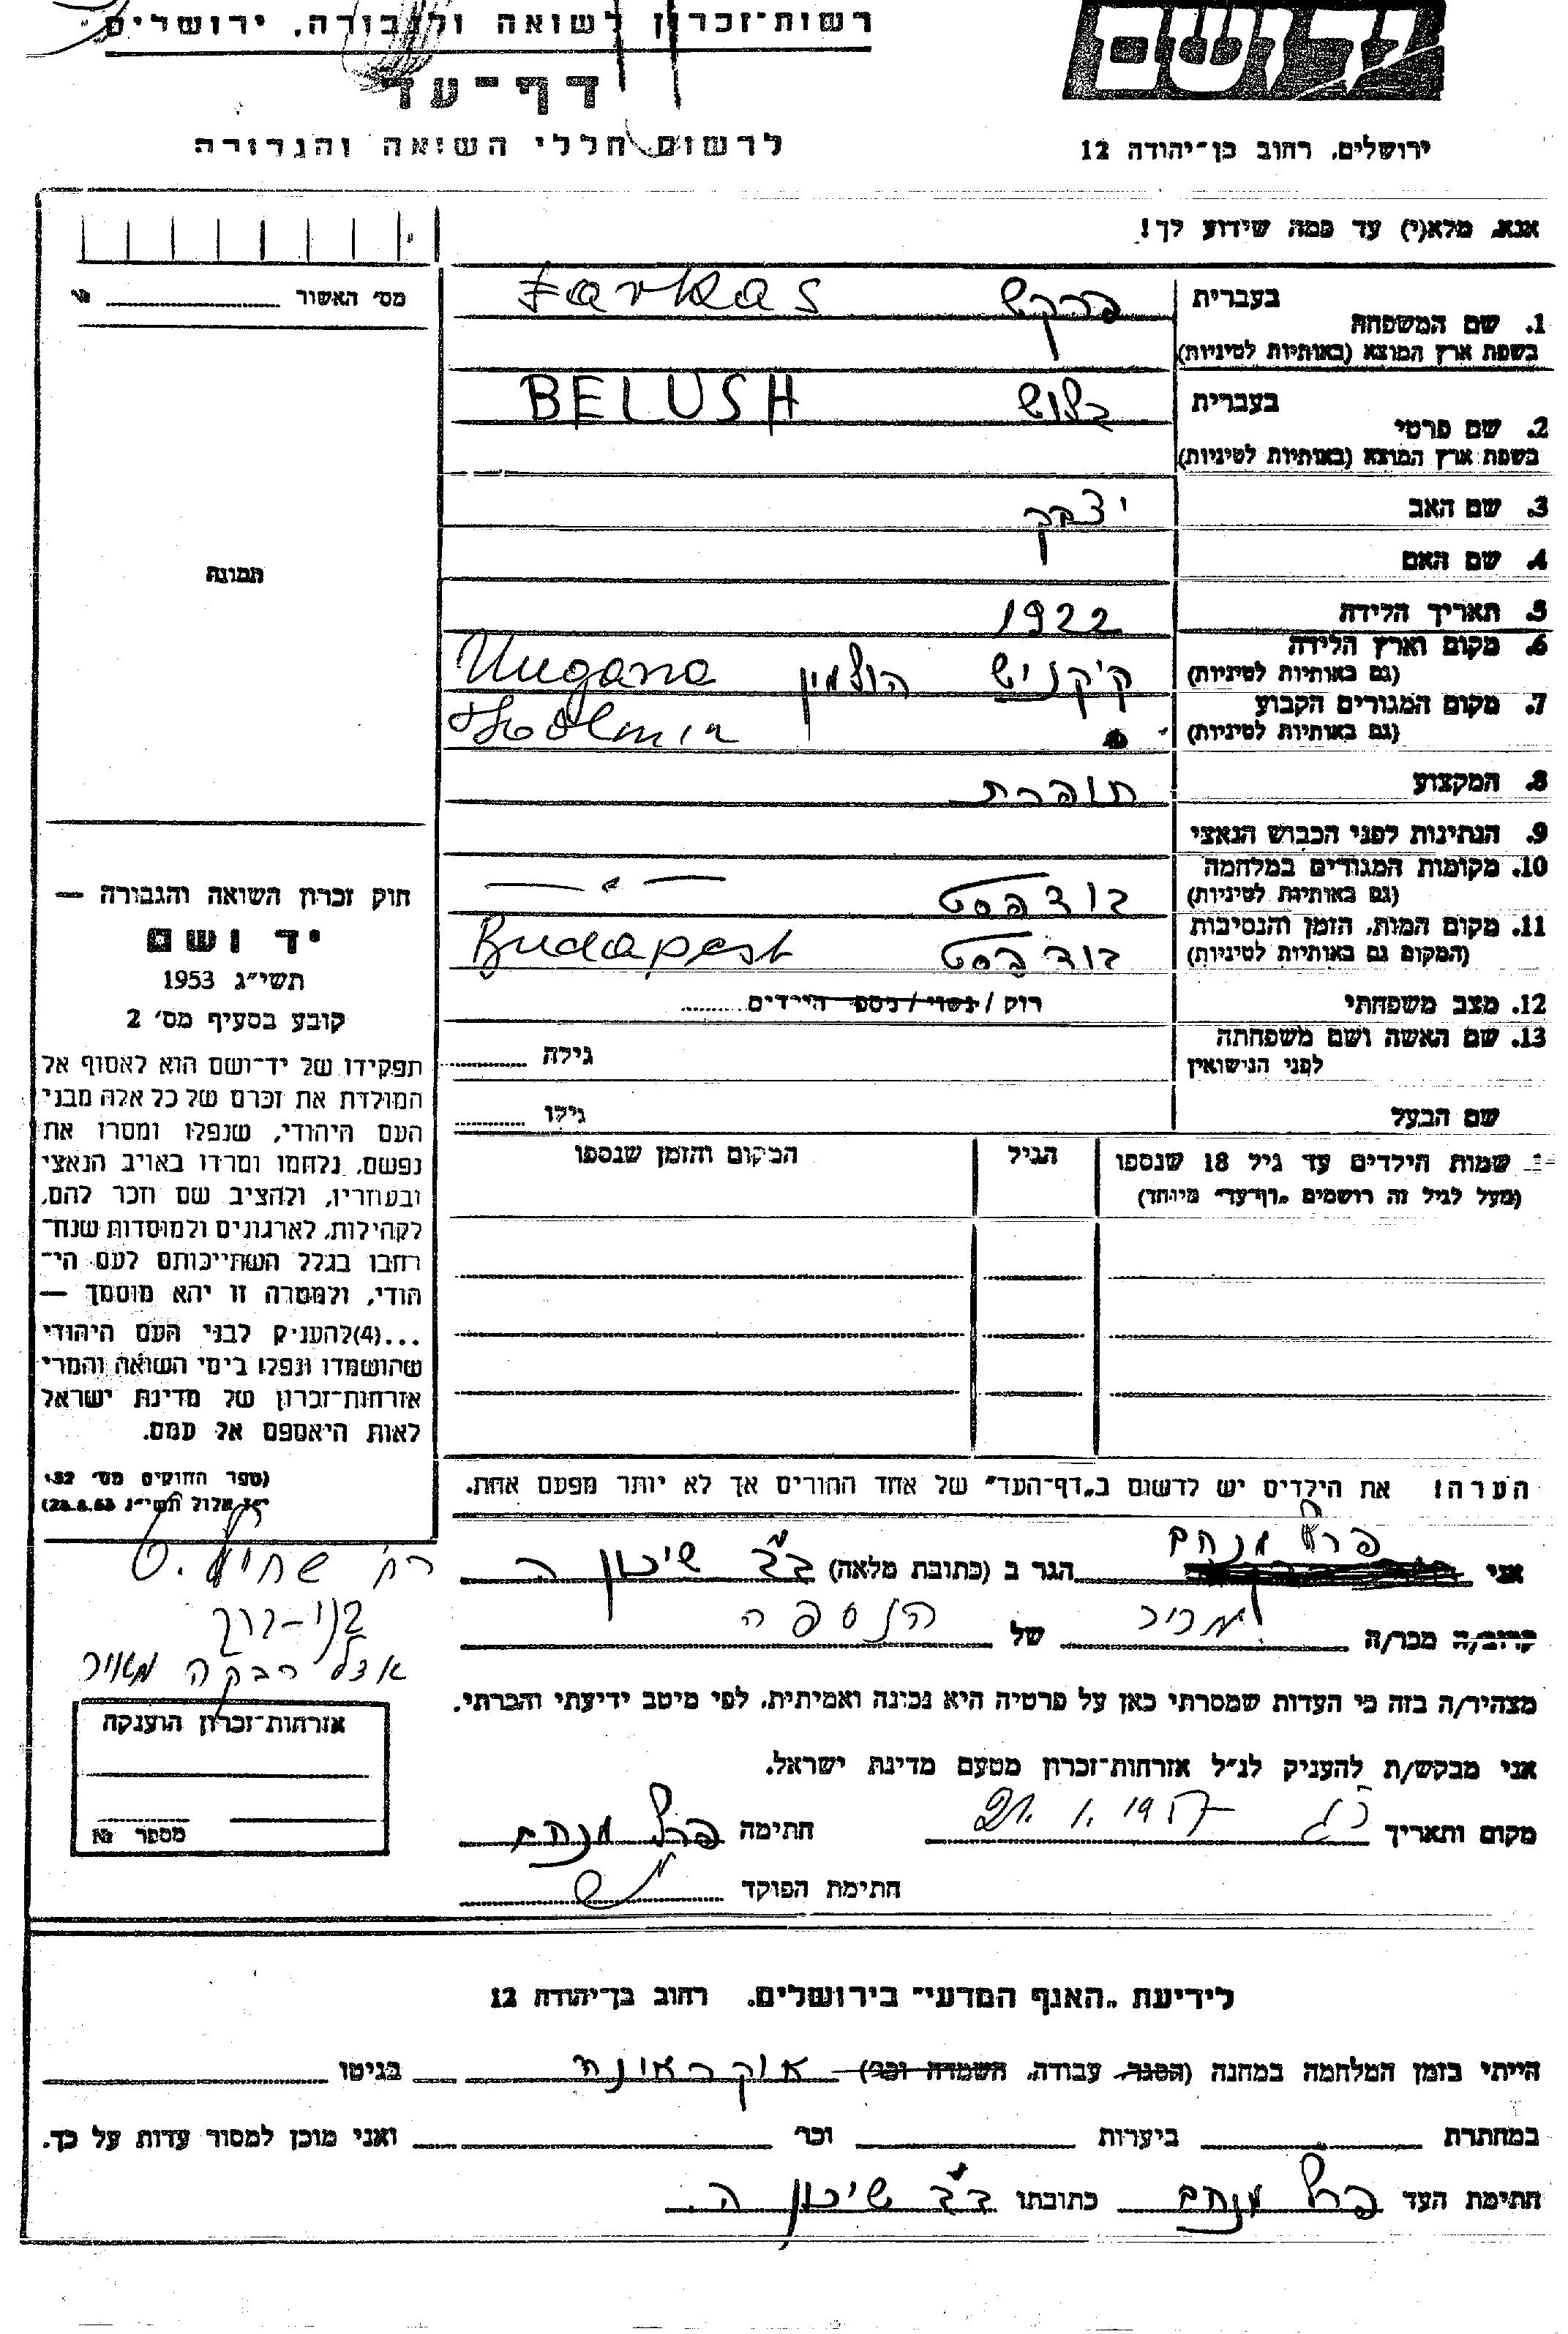 רשות־זכרון לשואה ולגבורה, ירושלים
דף־עד
לרשום חללי השואה והגבורה
ירושלים, רחוב בן־יהודה 12
אנא, מלא(י) עד כמה שידוע לך!
מס׳ האשור
1. שם המשפחה בעברית פרקש Farkas
בשפת ארץ המוצא (באותיות לטיניות)
2. שם פרטי בעברית בלוש BELUSH
בשפת ארץ המוצא (באותיות לטיניות)
3. שם האב יצחק
4. שם האם
תמונה
5. תאריך הלידה 1922
6. מקום וארץ הלידה
(גם באותיות לטיניות)
7. מקום המגורים הקבוע
(גם באותיות לטיניות)
8. המקצוע תופרת
9. הנתינות לפני הכבוש הנאצי
10. מקומות המגורים במלחמה בודפסט — " —
(גם באותיות לטיניות)
11. מקום המות, הזמן והנסיבות בודפסט Budapest
(המקום גם באותיות לטיניות)
12. מצב משפחתי רוק / נשוי / מספר הילדים
13. שם האשה ושם משפחתה גילה
לפני הנישואין
שם הבעל גילו
שמות הילדים עד גיל 18 שנספו הגיל המקום והזמן שנספו
(מעל לגיל זה רושמים „דף־עד" מיוחד)
חוק זכרון השואה והגבורה —
יד ושם
תשי״ג 1953
קובע בסעיף מס׳ 2
תפקידו של יד־ושם הוא לאסוף אל
המולדת את זכרם של כל אלה מבני
העם היהודי, שנפלו ומסרו את
נפשם, נלחמו ומרדו באויב הנאצי
ובעוזריו, ולהציב שם וזכר להם,
לקהילות, לארגונים ולמוסדות שנח־
רבו בגלל השתייכותם לעם הי־
הודי, ולמטרה זו יהא מוסמך —
...(4)להעניק לבני העם היהודי
שהושמדו ונפלו בימי השואה והמרי
אזרחות־זכרון של מדינת ישראל
לאות היאספם אל עמם.
(ספר החוקים מס׳ 132
י״ז אלול תשי״ג 28.8.53)
הערה! את הילדים יש לרשום ב„דף־העד" של אחד ההורים אך לא יותר מפעם אחת.
אני פרל מנחם הגר ב (כתובת מלאה) ב״ב שיכון ה
קרוב/ה מכר/ה מכיר של הנספה
רח׳
בני-ברק
אצל רבקה
מצהיר/ה בזה כי העדות שמסרתי כאן על פרטיה היא נכונה ואמיתית, לפי מיטב ידיעתי והכרתי.
אני מבקש/ת להעניק לנ״ל אזרחות־זכרון מטעם מדינת ישראל.
מקום ותאריך 21.1.1957 חתימה פרל מנחם
חתימת הפוקד
אזרחות־זכרון הוענקה
מספר №
לידיעת „האגף המדעי" בירושלים, רחוב בן־יהודה 12
הייתי בזמן המלחמה במחנה (הסגר, עבודה, השמדה וכו׳) אוקראינה בגיטו
במחתרת ביערות וכו׳ ואני מוכן למסור עדות על כך.
חתימת העד פרל מנחם כתובתו ב״ב שיכון ה.